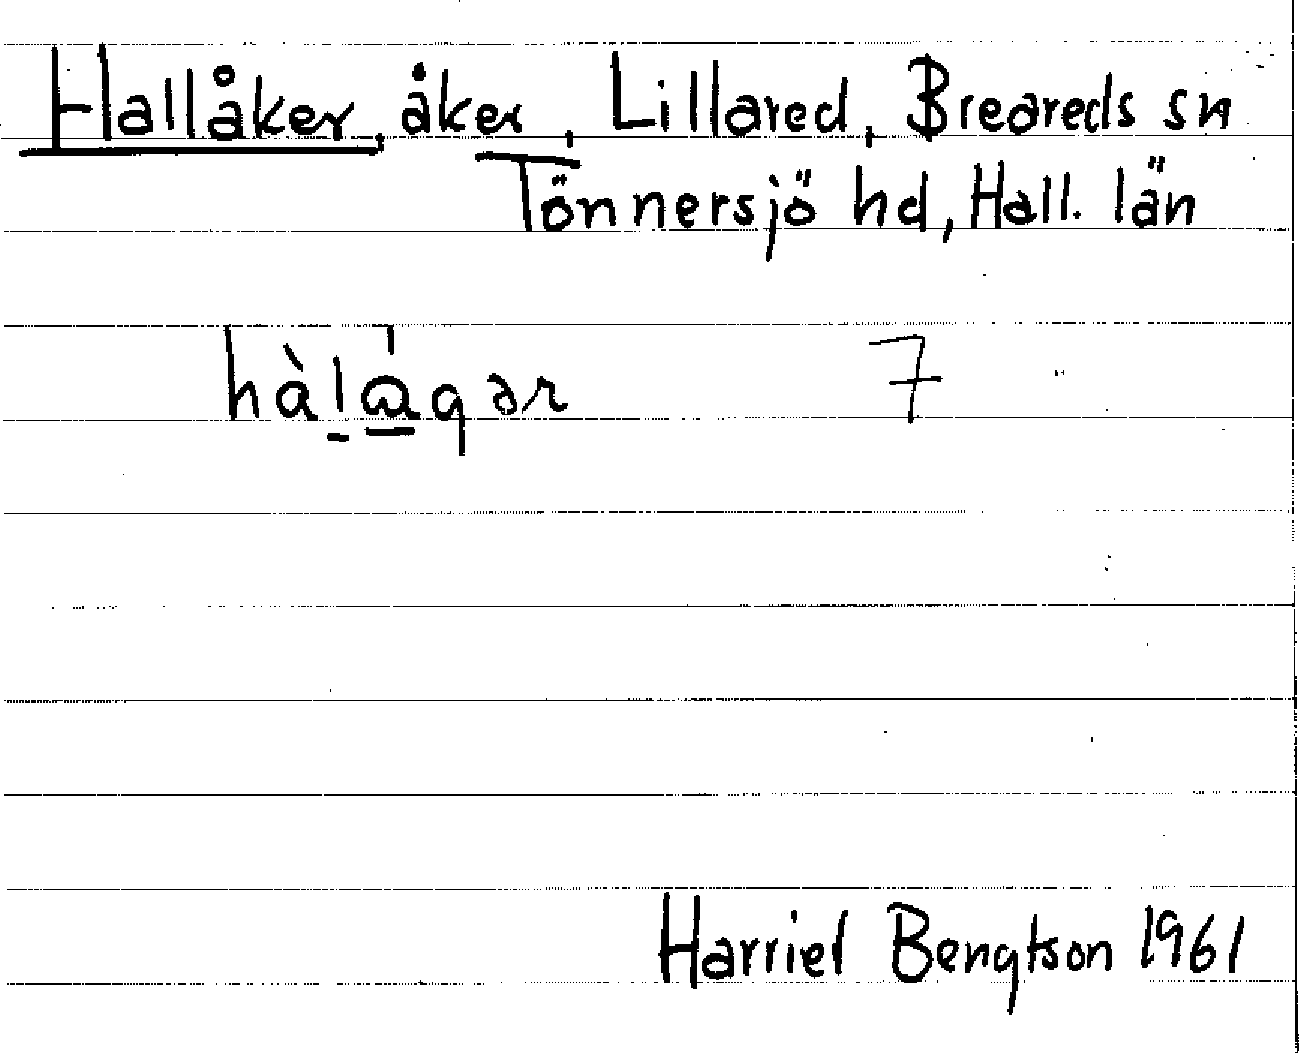 Hallåker, åker, Lillared, Breareds sn
Tönnersjö hd, Hall. län
hàl̠ǻ̲gər 7
Harriet Bengtson 1961